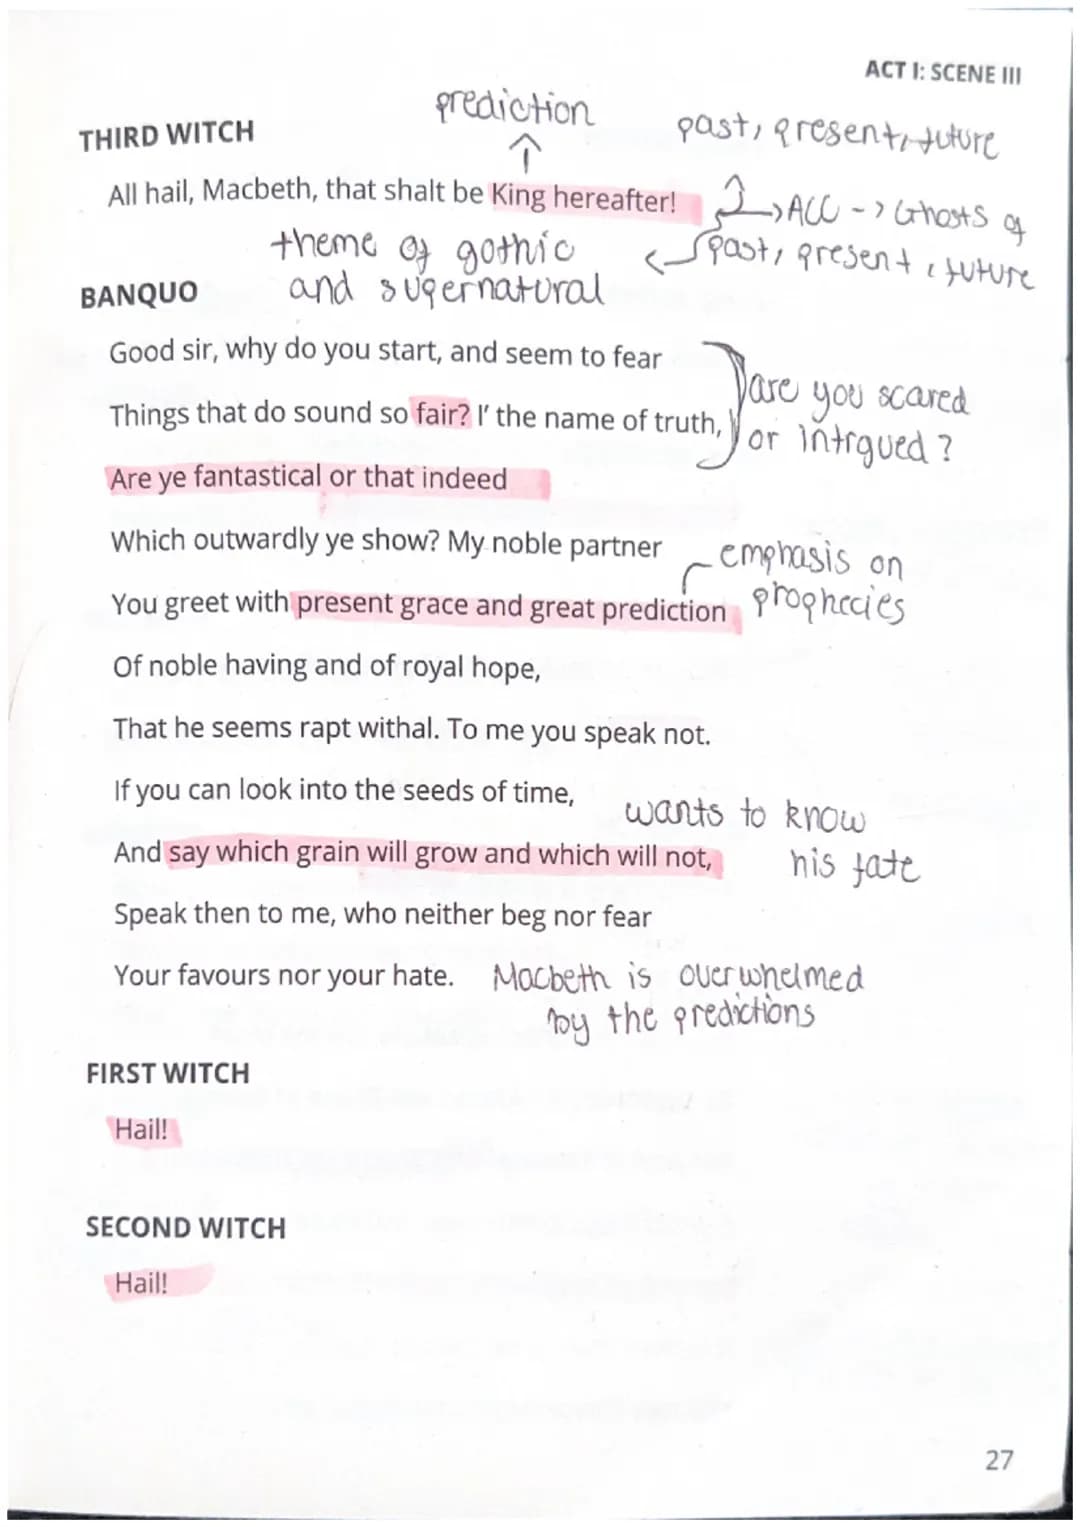 ACT I: SCENE III
prediction
past, present, future
THIRD WITCH
All hail, Macbeth, that shalt be King hereafter!
ACC -> Ghosts of
past, present, future
theme of gothic
and supernatural
BANQUO
Good sir, why do you start, and seem to fear
Things that do sound so fair? I' the name of truth,
are you scared
or intrgued?
Are ye fantastical or that indeed
Which outwardly ye show? My noble partner
emphasis on
prophecies
You greet with present grace and great prediction
Of noble having and of royal hope,
That he seems rapt withal. To me you speak not.
If you can look into the seeds of time,
wants to know
his fate
And say which grain will grow and which will not,
Speak then to me, who neither beg nor fear
Your favours nor your hate.
Macbeth is overwhelmed
by the predictions
FIRST WITCH
Hail!
SECOND WITCH
Hail!
27